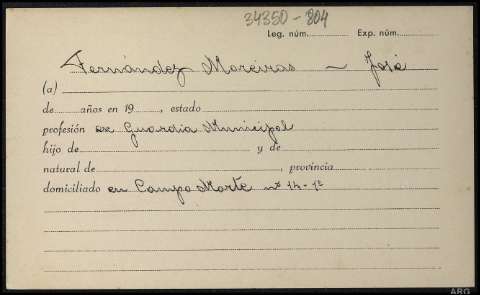 34350-804
Leg. núm. Exp. núm.
Fernández Moreiras - José
(a)
de años en 19 , estado
profesión ex Guardia Municipal
hijo de y de
natural de , provincia
domiciliado en Campo Marte nº 14-1º
ARG